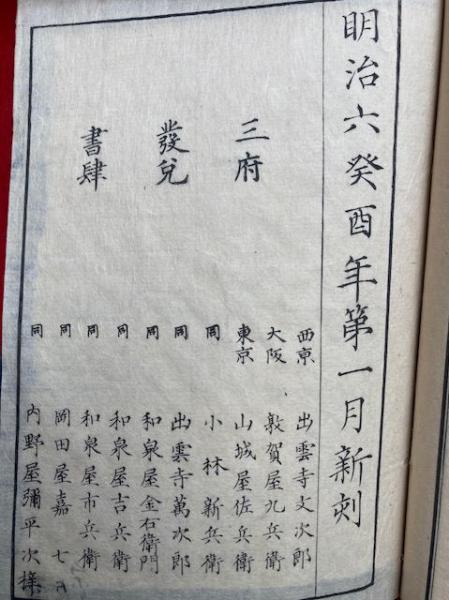 明治六癸酉年第一月新刻
三府
發兌
書肆
西京 出雲寺文次郎
大阪 敦賀屋九兵衛
東京 山城屋佐兵衛
同 小林新兵衛
同 出雲寺萬次郎
同 和泉屋金右衛門
同 和泉屋吉兵衛
同 和泉屋市兵衛
同 岡田屋嘉七
同 内野屋彌平次様